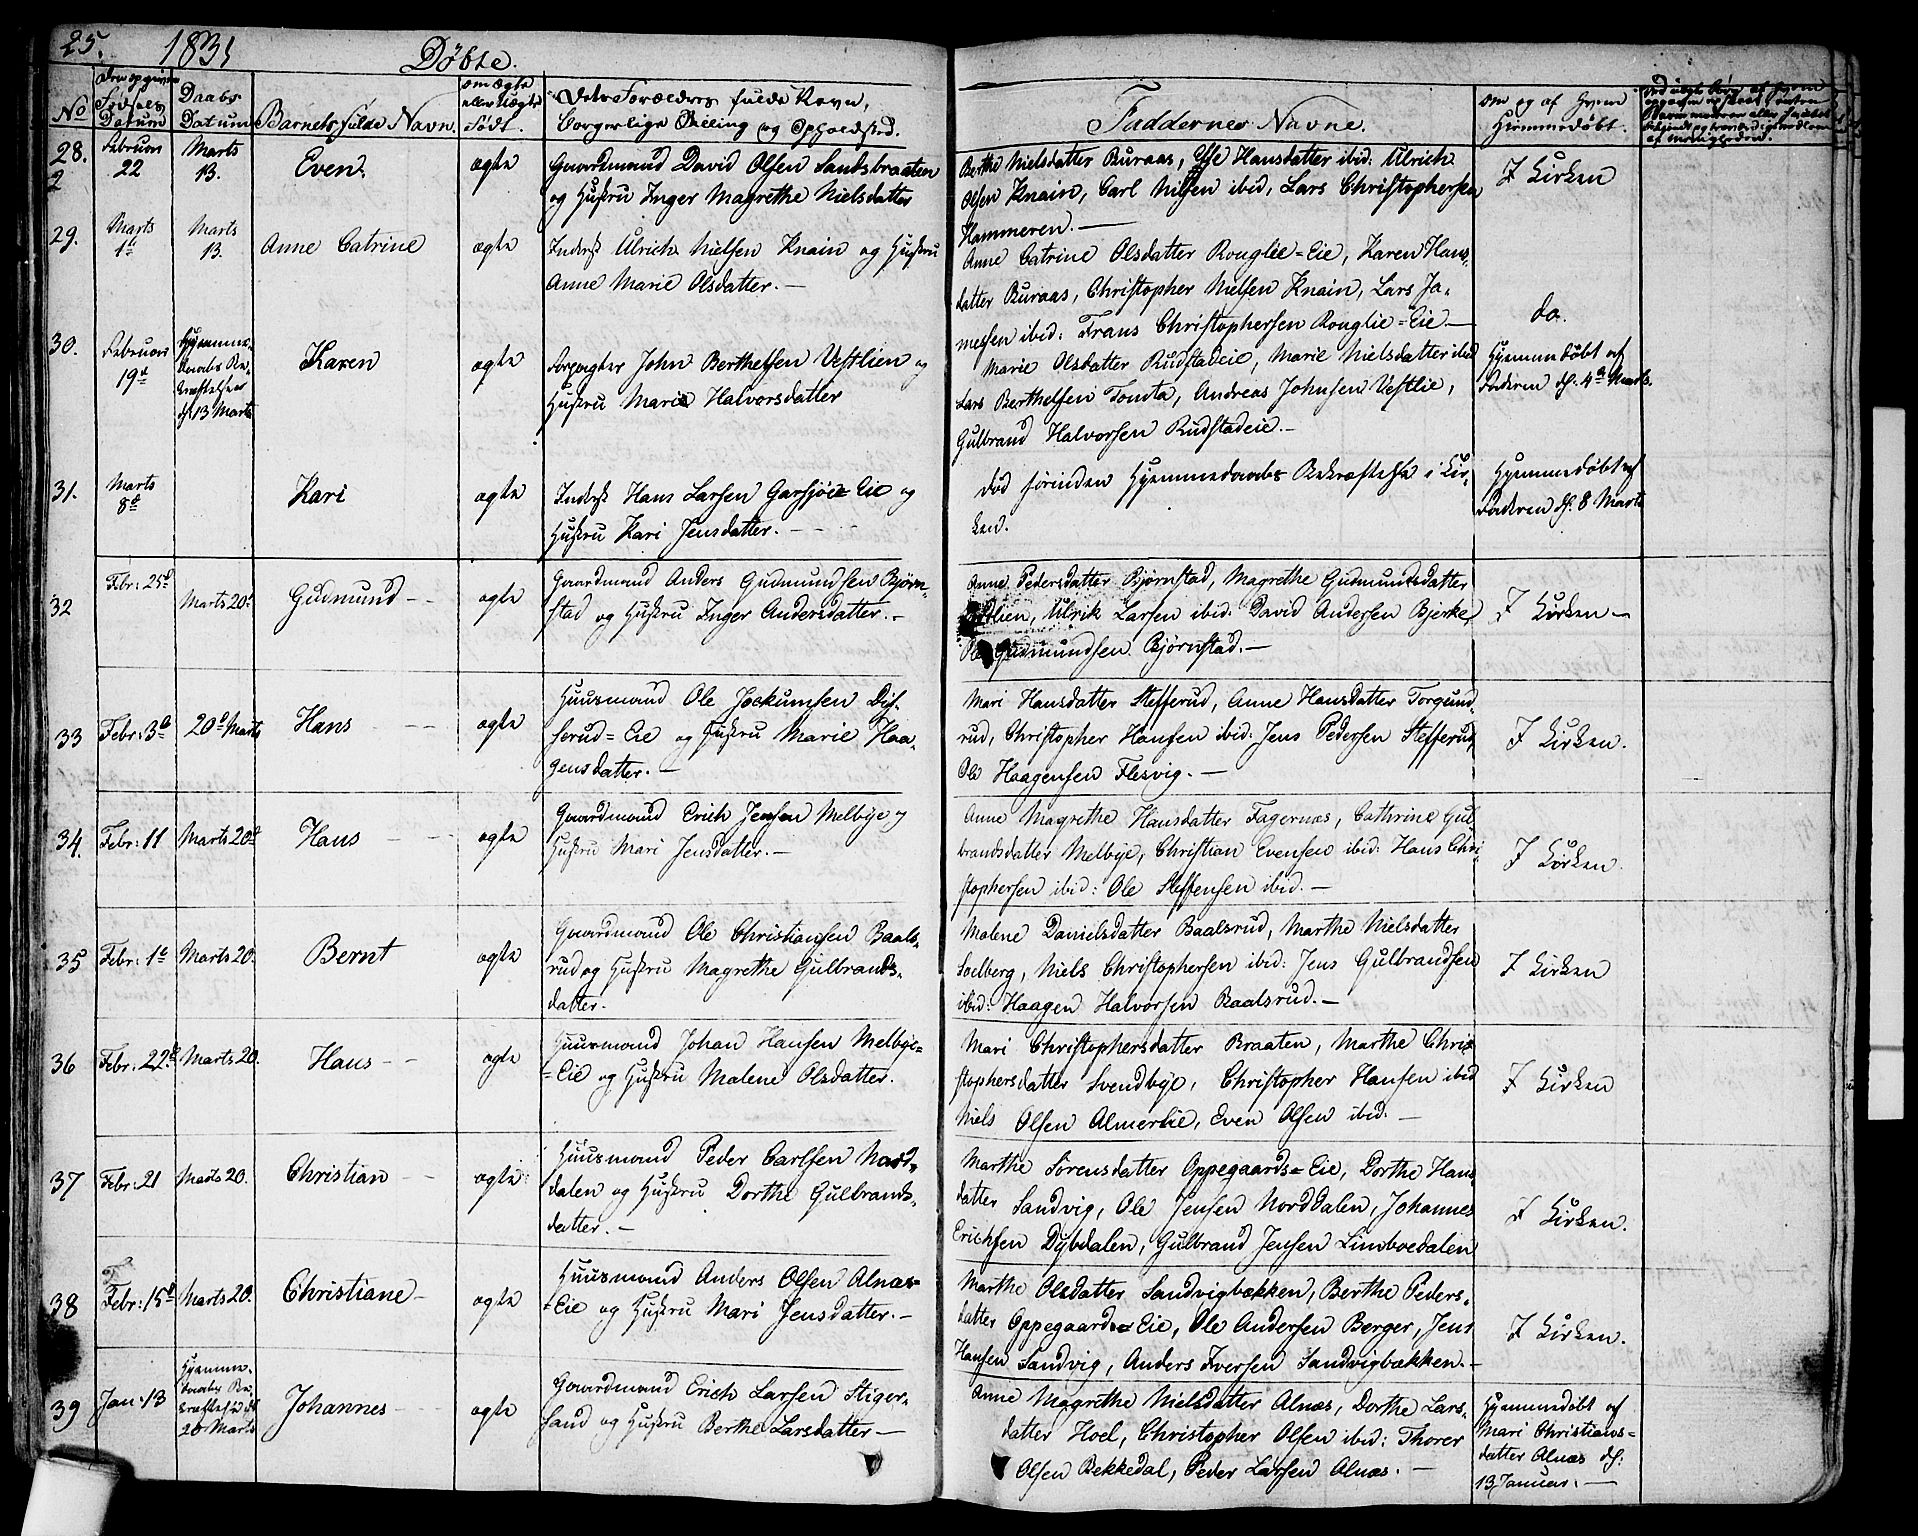 25. 1831 Døbte.
No
Den opgivne Fødsels Datum
Daabs Datum
Barnets fulde Navn.
om ægte eller uægte Født.
Forældres fulde Navn, borgerlige Stilling og Opholdsted.
Faddernes Navne.
om og af hvem Hiemmedøbt.
28. Februar 22 Marts 13. Even. ægte Gaardmand David Olsen Sandsbraaten
og Hustru Inger Magrethe Nielsdatter
Berthe Nielsdatter Buraas, Hansdatter ibid: Ulrich
Olsen Knain, Carl Nilsen ibid, Lars Christophersen
Hammeren. —
I Kirken
29. Marts 1te Marts 13. Anne Catrine ægte Inderst Ulrich Nielsen Knain og Hustru
Anne Marie Olsdatter. —
Anne Catrine Olsdatter Rouglie=Eie, Karen Hans-
datter Buraas, Christopher Nielsen Knain, Lars Ja-
mesen ibid: Frans Christophersen Rouglie=Eie —
do.
30. Februar 19de Hjemme-
daabs Be-
kræftelse
d. 13 Marts
Karen ægte Forpagter John Berthelsen Vestlien og
Hustru Marie Halvorsdatter
Marie Olsdatter Rudstadeie, Marie Nielsdatter ibid
Lars Berthelsen Tomta, Andreas Johnsen Vestlie,
Gulbrand Halvorsen Rudstadeie. —
Hjemmedøbt af
Faderen d: 4de Marts.
31. Marts 8de Kari ægte Inderst Hans Larsen Garsjøie=Eie og
Hustru Kari Jensdatter. —
Død førinden Hjemmedaabs Bekræftelse i Kir-
ken.
Hjemmedøbt af
Faderen d. 8 Marts
32 Febr: 25d Marts 20d Gudmund — ægte Gaardmand Anders Gudmundsen Bjørn-
stad og Hustru Inger Andersdatter. —
Anne Pedersdatter Bjørnstad, Magrethe Gudmundsdatter
Ulrik Larsen ibid: David Andersen Bjerke,
Ole Gudmundsen Bjørnstad. —
I Kirken —
33 Febr: 3d 20d Marts Hans — ægte Huusmand Ole Jockumsen Dis-
serud=Eie og Hustru Marie Haa-
gensdatter. —
Mari Hansdatter Stefferud, Anne Hansdatter Torgund-
rud, Christopher Hansen ibid: Jens Pedersen Stefferud,
Ole Haagensen Flesvig. —
I Kirken.
34. Febr: 11 Marts 20d Hans — ægte Gaardmand Erich Jensen Melbye og
Hustru Mari Jensdatter. —
Anne Magrethe Hansdatter Fagernæs, Cathrine Gul-
brandsdatter Melbye, Christian Evensen ibid: Hans Chri-
stophersen ibid: Ole Steffensen ibid. —
I Kirken.
35 Febr: 1e Marts 20. Bernt ægte Gaardmand Ole Christiansen Baals-
rud og Hustru Magrethe Gulbrands-
datter.
Malene Danielsdatter Baalsrud, Marthe Nielsdatter
Soelberg, Niels Christophersen ibid: Jens Gulbrandsen
ibid: Haagen Halvorsen Baalsrud. —
I Kirken
36 Febr: 22d Marts 20. Hans — ægte Huusmand Johan Hansen Melbye-
=Eie og Hustru Malene Olsdatter.
Mari Christophersdatter Braaten, Marthe Chri-
stophersdatter Svendbye, Christopher Hansen ibid
Niels Olsen Almerlie, Even Olsen ibid. —
I Kirken
37 Febr: 21 Marts 20. Christian — ægte Huusmand Peder Carlsen Nord-
dalen og Hustru Dorthe Gulbrands-
datter. —
Marthe Sørensdatter Oppegaards=Eie, Dorthe Hans
datter Sandvig, Ole Jensen Norddalen, Johannes
Erichsen Dybdalen, Gulbrand Jensen Limboedalen
I Kirken.
38 Febr: 15d Marts 20. Christiane — ægte Huusmand Anders Olsen Alnæs-
=Eie og Hustru Mari Jensdatter. —
Marthe Olsdatter Sandvigbækken, Berthe Peders-
datter Oppegaards=Eie, Ole Andersen Berger, Jens
Hansen Sandvig, Anders Iversen Sandvigbækken. —
I Kirken.
39 Jan: 13 Hjemme-
daabs Be-
kræftelse d:
20 Marts
Johannes — ægte Gaardmand Erich Larsen Stiger-
sand og Hustru Berthe Larsdatter —
Anne Magrethe Nielsdatter Alnæs, Dorthe Lars-
datter Hoel, Christopher Olsen ibid: Thorer
Olsen Bekkedal, Peder Larsen Alnæs. —
Hjemmedøbt af
Mari Christians-
datter Alnæs d:
13 Januar. —